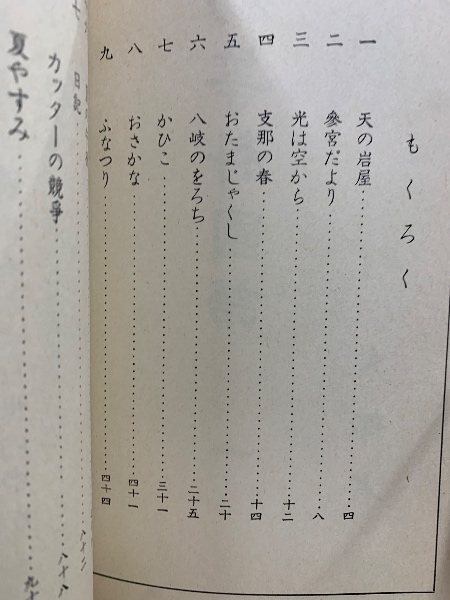 もくろく
一 天の岩屋 四
二 參宮だより 八
三 光は空から 十二
四 支那の春 十四
五 おたまじゃくし 二十
六 八岐のをろち 二十五
七 かひこ 三十一
八 おさかな 四十一
九 ふなつり 四十四
日記 八十二
カッターの競爭 八十八
夏やすみ